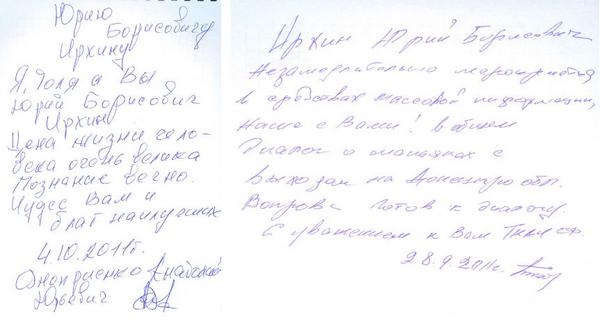 Юрию
Борисовичу
Ирхину
Я, Толя а Вы
Юрий Борисович
Ирхин
Цена жизни чело-
века очень велика
Познание вечно.
Чудес Вам и
благ наилучших
4.10.2011г.
Оноприенко Анатолий
Юрьевич
Ирхин Юрий Борисович
Незамедлительно мероприятия
в средствах массовой информации,
Наше с Вами! в общем
Диалог о маньяках с
выходом на Донецкую обл.
Вопрова Готов к диалогу.
С уважением к Вам Ткач СФ.
28.9.2011г.